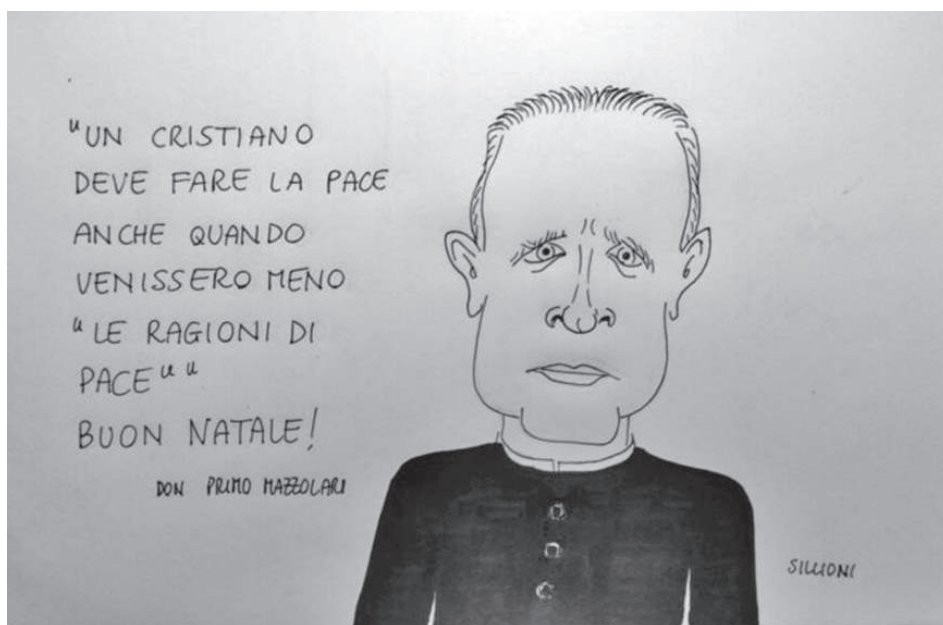 "UN CRISTIANO
DEVE FARE LA PACE
ANCHE QUANDO
VENISSERO MENO
"LE RAGIONI DI
PACE" "
BUON NATALE!
DON PRIMO MAZZOLARI
SILLIONI